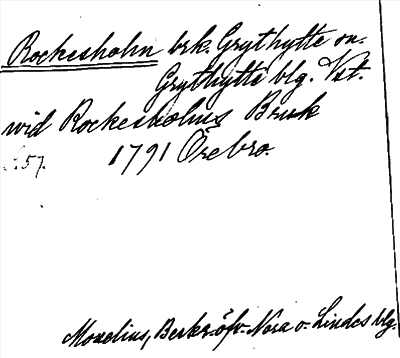 Rockesholm brk. Grythytte sn.
Grythytte blg. Vst.
wid Rockesholms Bruk
S. 57. 1791 Örebro.
Mozelius, Beskr. öfv. Nora o. Lindes blg.